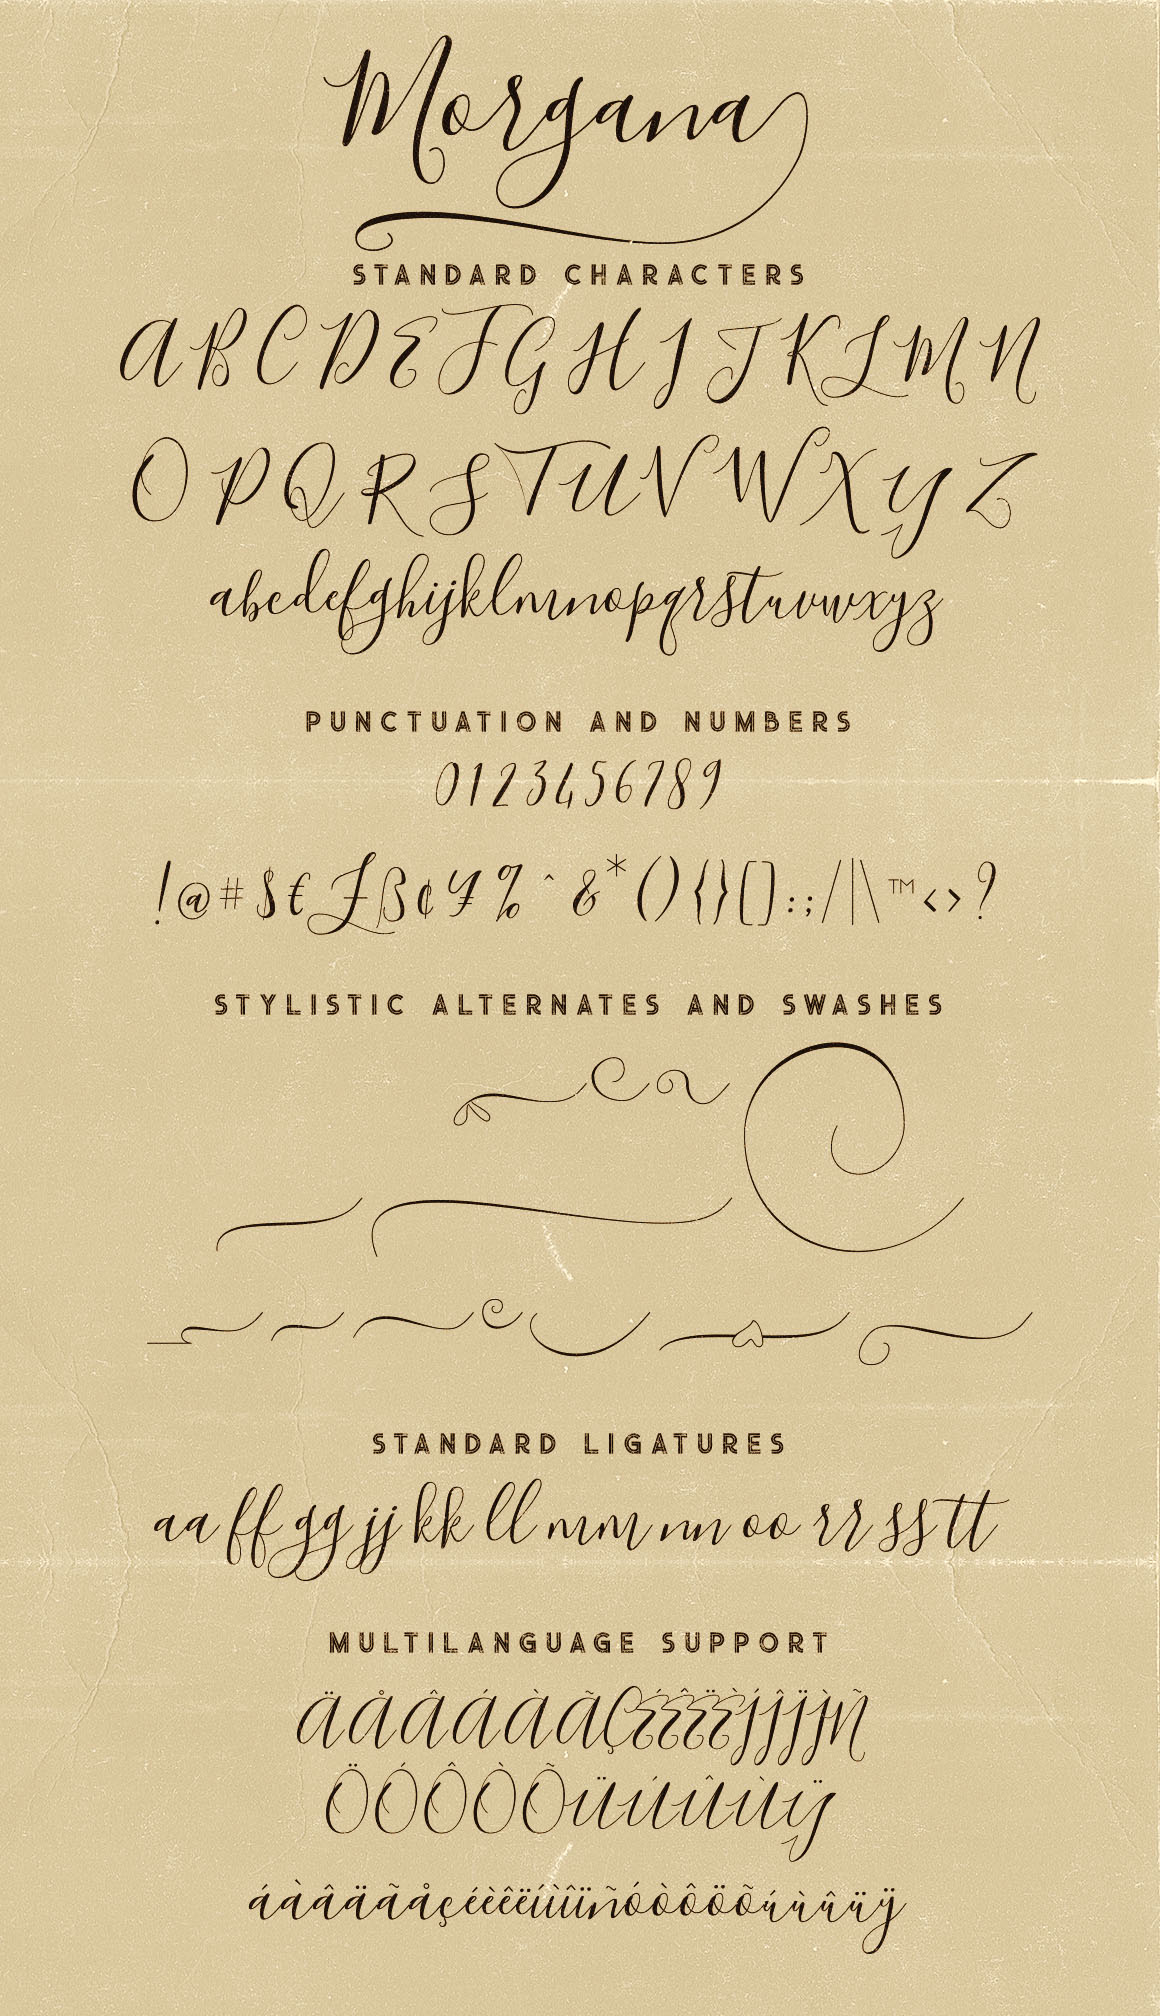 Morgana
STANDARD CHARACTERS
A B C D E F G H I J K L M N
O P Q R S T U V W X Y Z
abcdefghijklmnopqrstuvwxyz
PUNCTUATION AND NUMBERS
0123456789
!@#$€£ß¢¥%^&*(){}[]:;/|\™<>?
STYLISTIC ALTERNATES AND SWASHES
STANDARD LIGATURES
aa ff gg jj kk ll mm nn oo rr ss tt
MULTILANGUAGE SUPPORT
ÄÅÂÁÀÃÇÉÊËÈÍÎÏÌÑ
ÖÓÔÒÕÜÚÛÙŸ
áàâäãåçéèêëíìîïñóòôöõúùûüÿ